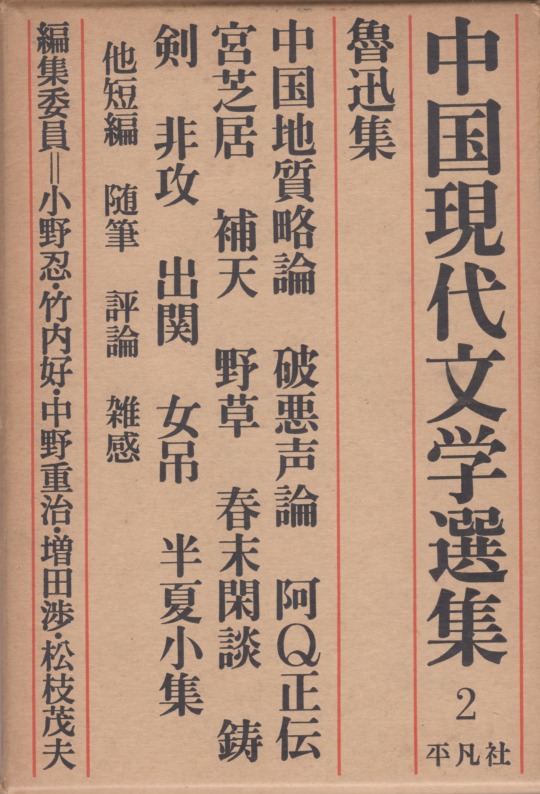 中国現代文学選集
2
平凡社
魯迅集
中国地質略論 破悪声論 阿Q正伝
宮芝居 補天 野草 春末閑談 鋳
剣 非攻 出関 女吊 半夏小集
他短編 随筆 評論 雑感
編集委員＝小野忍・竹内好・中野重治・増田渉・松枝茂夫